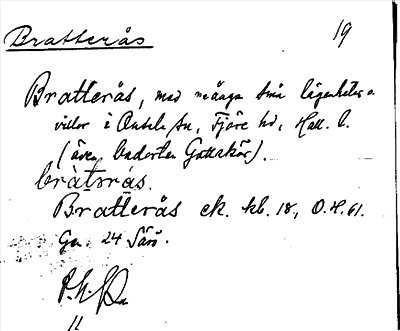 Bratterås
19
Bratterås, med många små lägenheter o.
villor i Onsala sn, Fjäre hd, Hall. l.
(även badorten Gottskär).
bràtsrás.
Bratterås ek. kb. 18, O.H. 61.
Gen. 24 Särö.
11